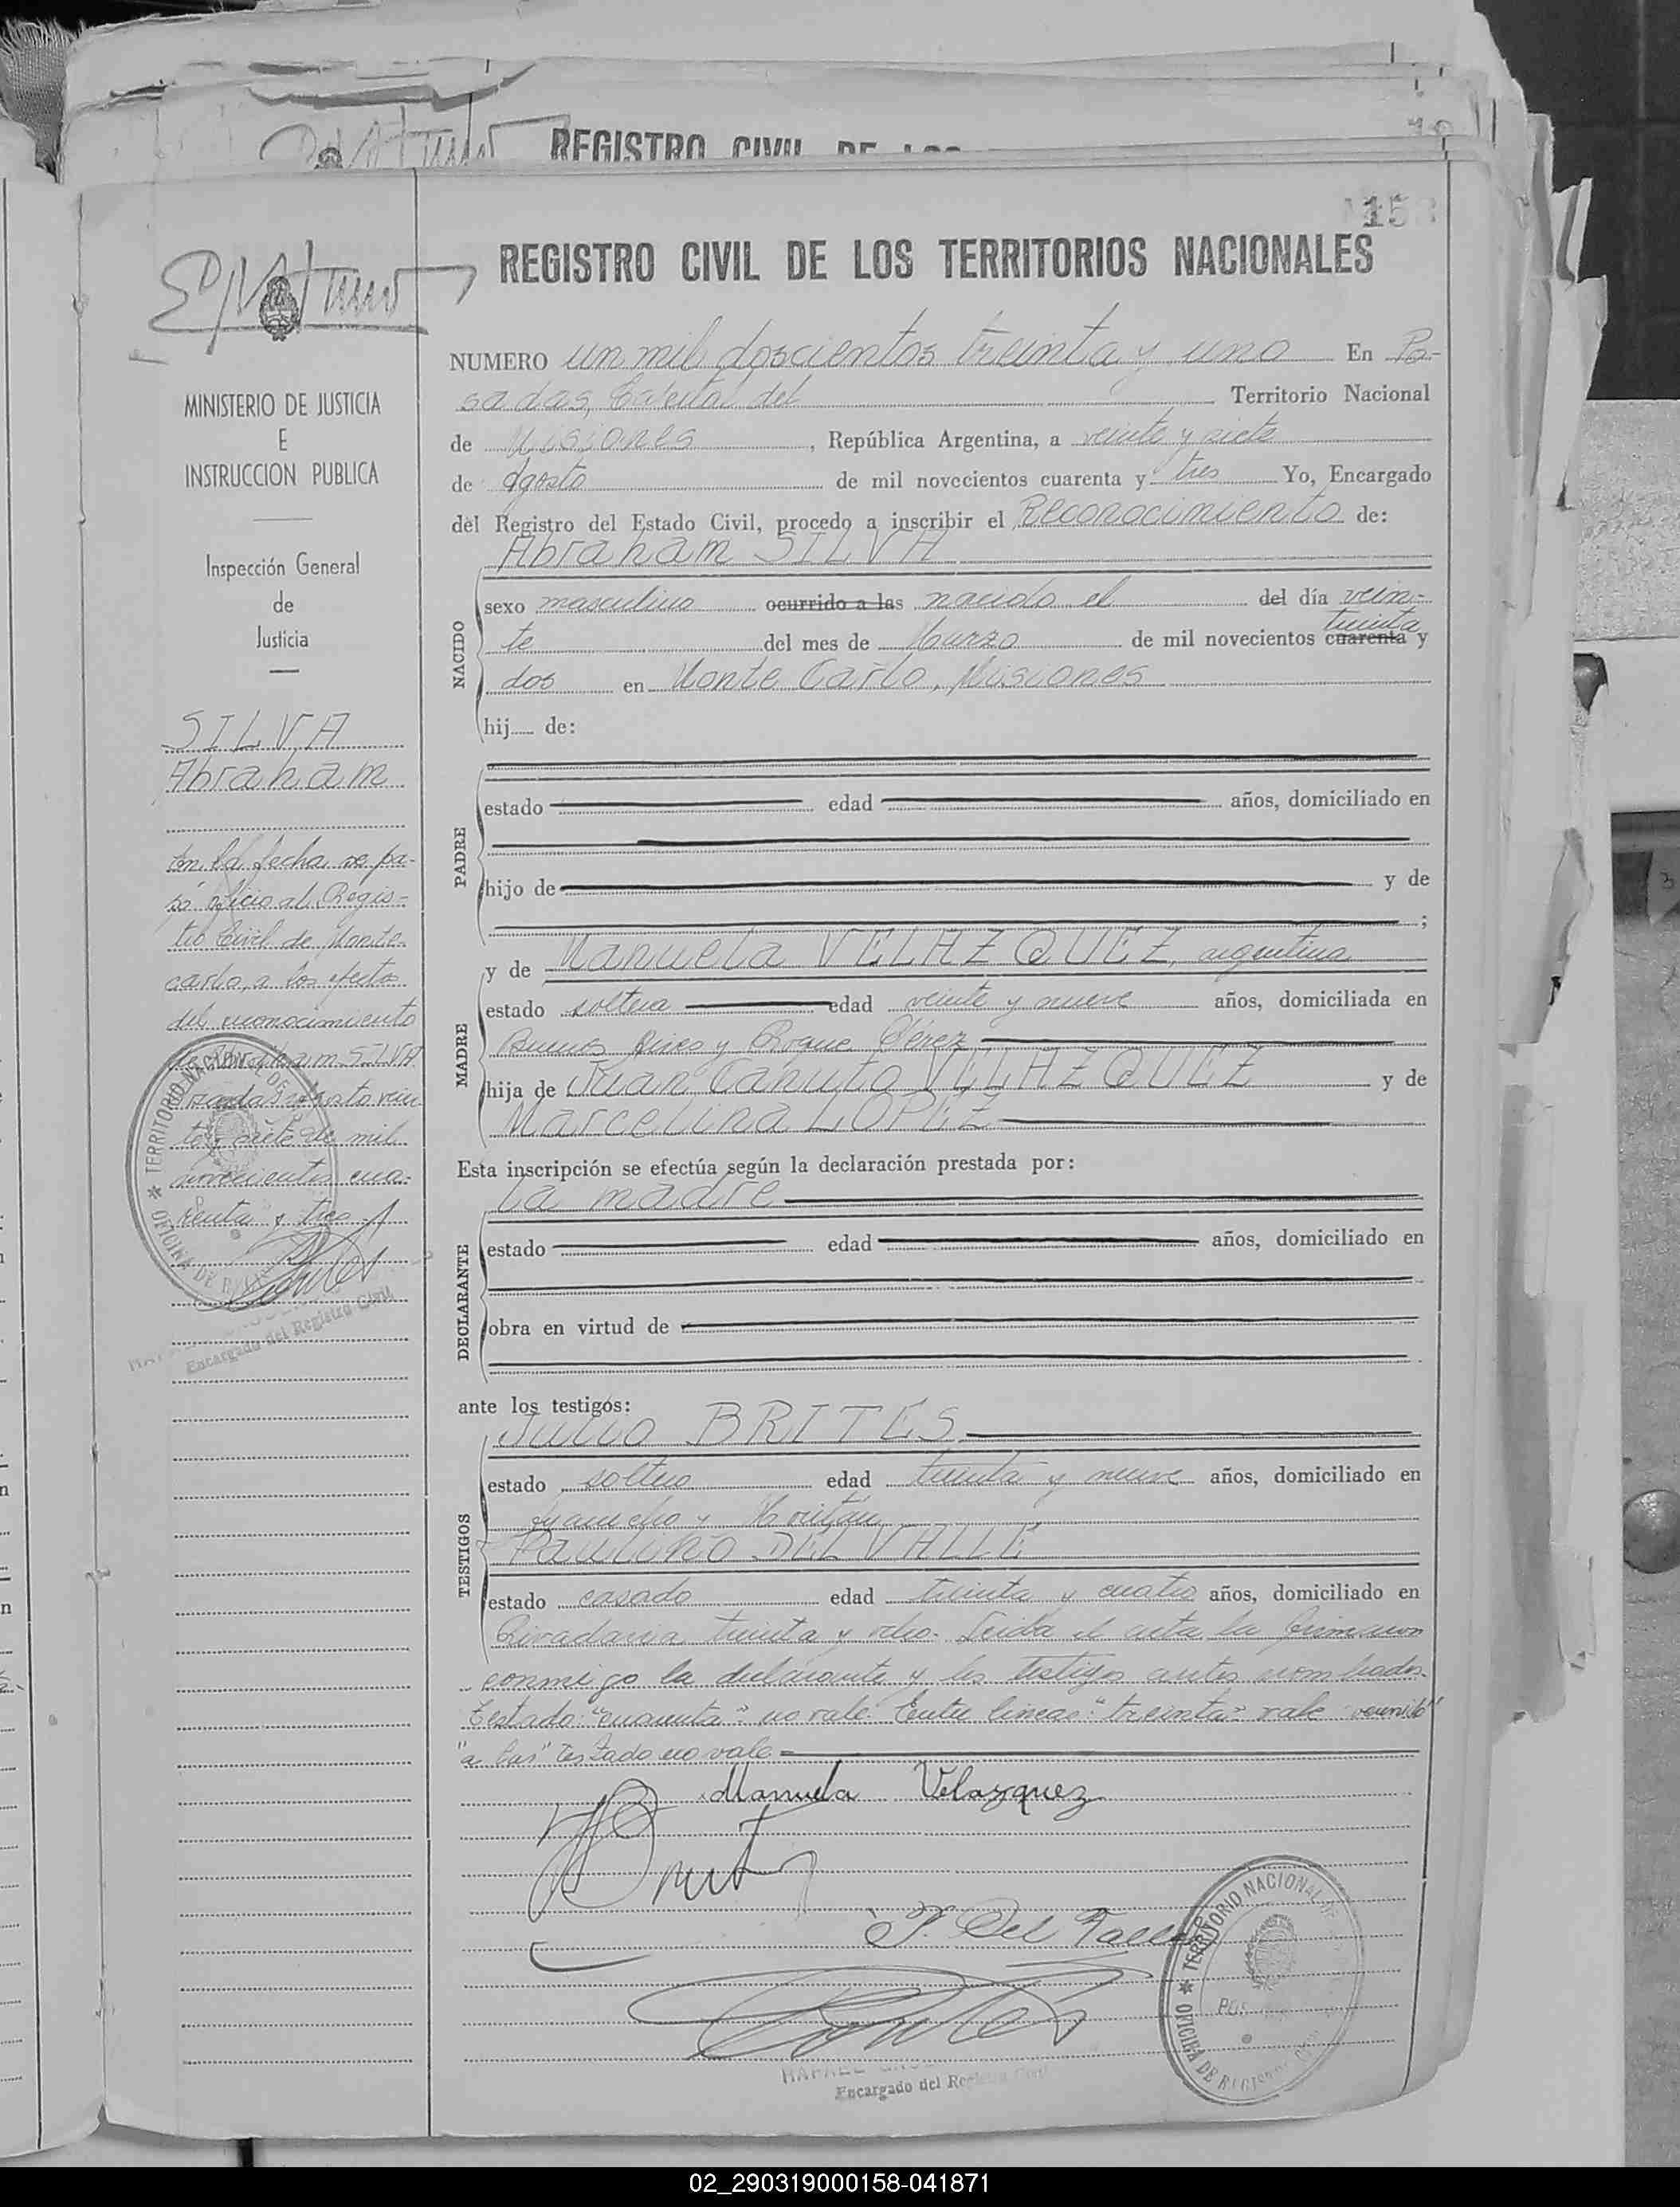 REGISTRO CIVIL DE LOS
15
REGISTRO CIVIL DE LOS TERRITORIOS NACIONALES
MINISTERIO DE JUSTICIA
E
INSTRUCCION PUBLICA
Inspección General
de
Justicia
SILVA
Abraham
En la fecha se pa-
só oficio al Regis-
tro Civil de Monte-
carlo, a los efectos
del reconocimiento
de Abraham SILVA
Posadas Agosto vein
te y siete de mil
novecientos cua-
renta y tres
Encargado del Registro Civil
NUMERO un mil doscientos treinta y uno En Po-
sadas, Capital del Territorio Nacional
de Misiones, República Argentina, a veinte y siete
de Agosto de mil novecientos cuarenta y tres Yo, Encargado
del Registro del Estado Civil, procedo a inscribir el Reconocimiento de:
Abraham SILVA
NACIDO
sexo masculino ocurrido a las nacido el del día vein-
treinta
te del mes de Marzo de mil novecientos cuarenta y
dos en Monte Carlo, Misiones
hij de:
PADRE
estado edad años, domiciliado en
hijo de y de
;
MADRE
y de Manuela VELAZQUEZ, argentina
estado soltera edad veinte y nueve años, domiciliada en
Buenos Aires y Roque Pérez
hija de Juan Canuto VELAZQUEZ y de
Marcelina LOPEZ
Esta inscripción se efectúa según la declaración prestada por:
La madre
DECLARANTE
estado edad años, domiciliado en
obra en virtud de
ante los testigos:
TESTIGOS
Julio BRITES
estado soltero edad treinta y nueve años, domiciliado en
Ayacucho y
Paulino DEL VALLE
estado casado edad treinta y cuatro años, domiciliado en
Rivadavia treinta y ocho. Leída el acta la firmaron
conmigo la declarante y los testigos antes nombrados.
Testado: "cuarenta" no vale. Entre lineas: "treinta" vale
"a las" Testado no vale
Manuela Velazquez
P. Del Valle
TERRITORIO NACIONAL DE
OFICINA DE REGISTRO
RAFAEL
Encargado del Registro Civil
02_290319000158-041871